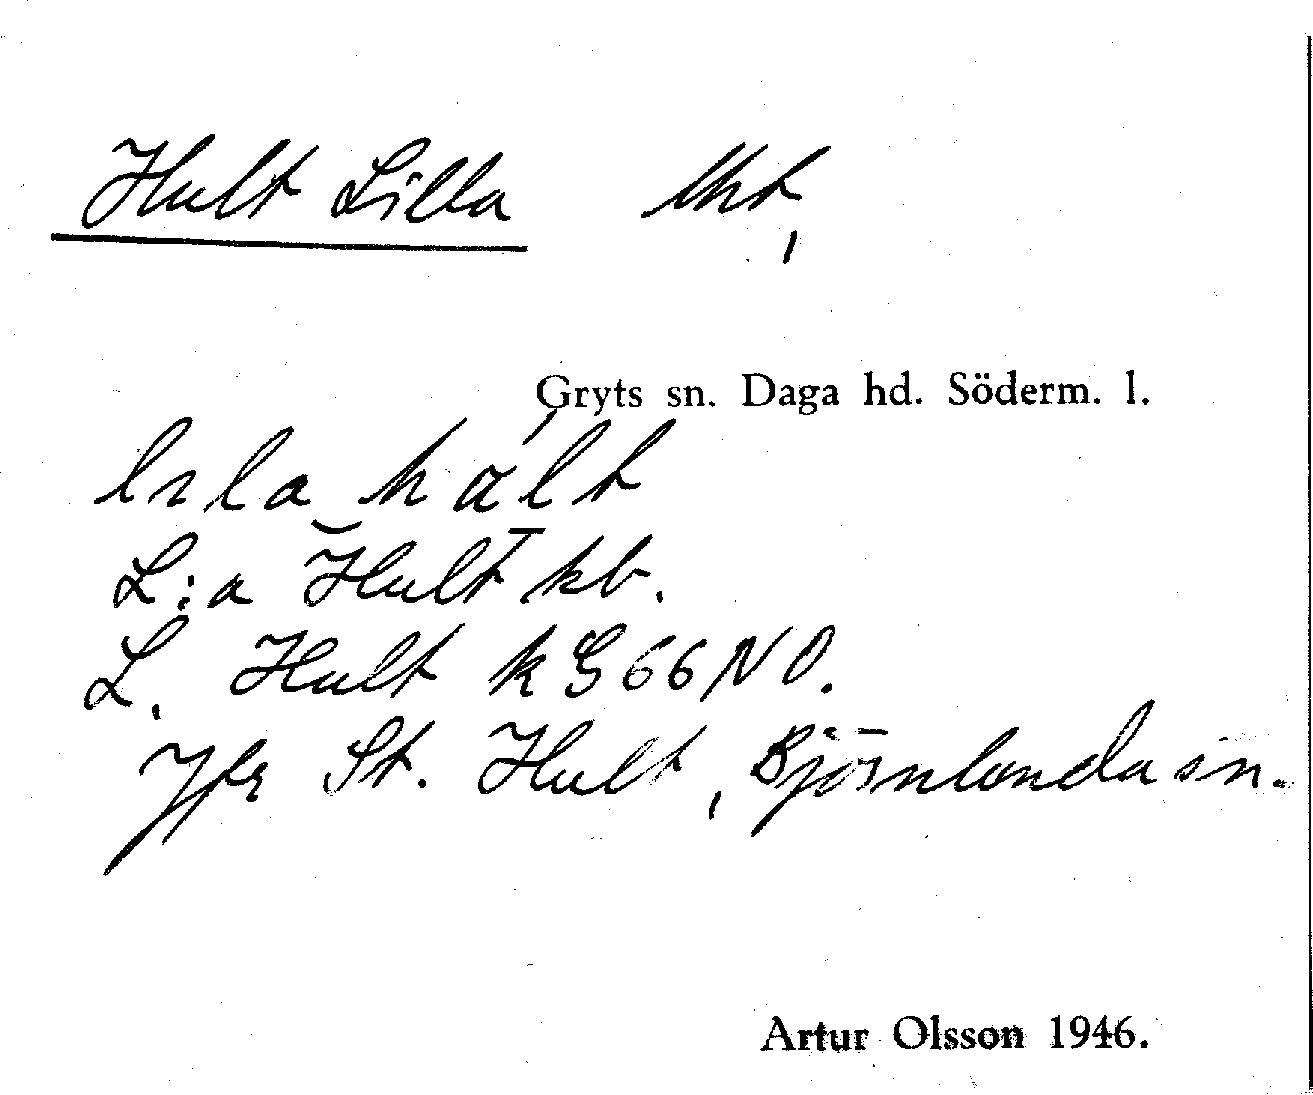 Hult Lilla lht,
Gryts sn. Daga hd. Söderm. l.
L:a Hult kb.
L. Hult k G66NO.
Jfr St. Hult, Björnlunda sn.
Artur Olsson 1946.